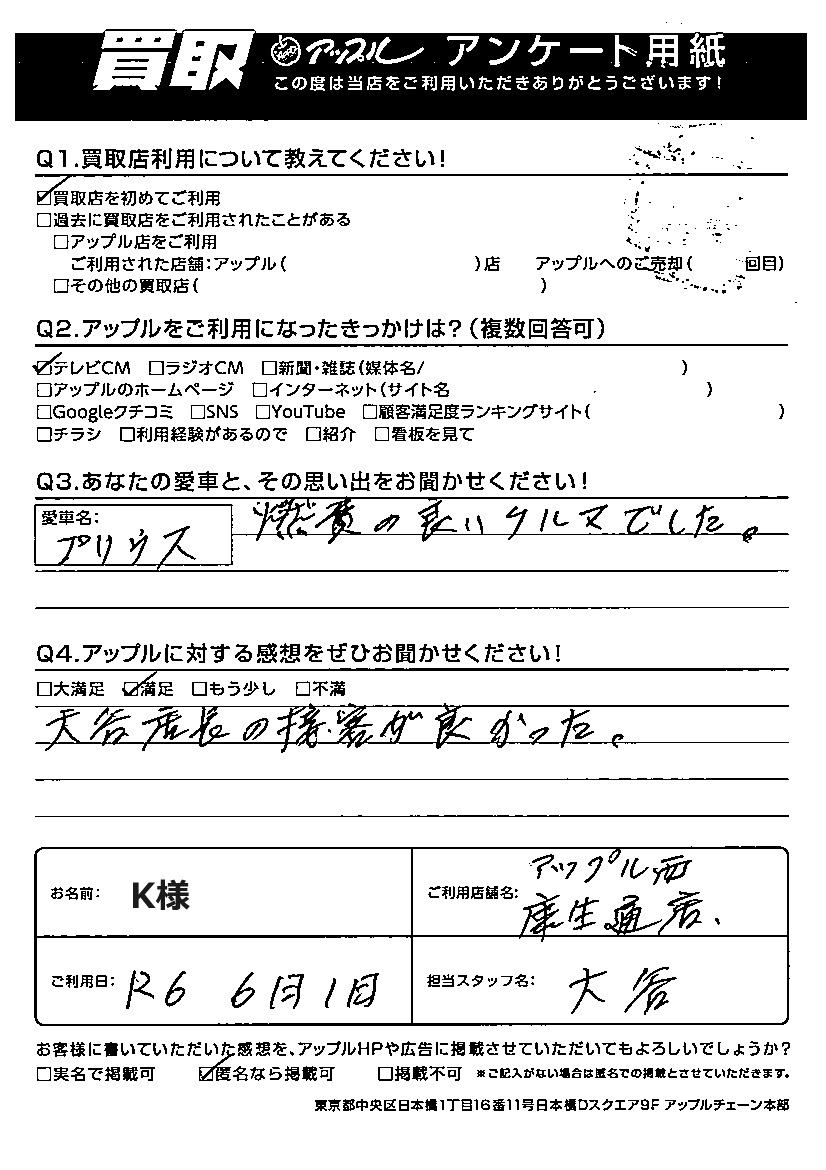 買取 アップル アンケート用紙
この度は当店をご利用いただきありがとうございます!
Q1.買取店利用について教えてください!
☑買取店を初めてご利用
□過去に買取店をご利用されたことがある
□アップル店をご利用
ご利用された店舗:アップル( )店 アップルへのご売却( 回目)
□その他の買取店( )
Q2.アップルをご利用になったきっかけは?(複数回答可)
☑テレビCM □ラジオCM □新聞・雑誌(媒体名/ )
□アップルのホームページ □インターネット(サイト名 )
□Googleクチコミ □SNS □YouTube □顧客満足度ランキングサイト( )
□チラシ □利用経験があるので □紹介 □看板を見て
Q3.あなたの愛車と、その思い出をお聞かせください!
愛車名:
プリウス
燃費の良いクルマでした。
Q4.アップルに対する感想をぜひお聞かせください!
□大満足 ☑満足 □もう少し □不満
大谷店長の接客が良かった。
お名前: K様
ご利用店舗名: アップル西
康生通店、
ご利用日: R6 6月1日
担当スタッフ名: 大谷
お客様に書いていただいた感想を、アップルHPや広告に掲載させていただいてもよろしいでしょうか?
□実名で掲載可 ☑匿名なら掲載可 □掲載不可 ※ご記入がない場合は匿名での掲載とさせていただきます。
東京都中央区日本橋1丁目16番11号日本橋Dスクエア9F アップルチェーン本部